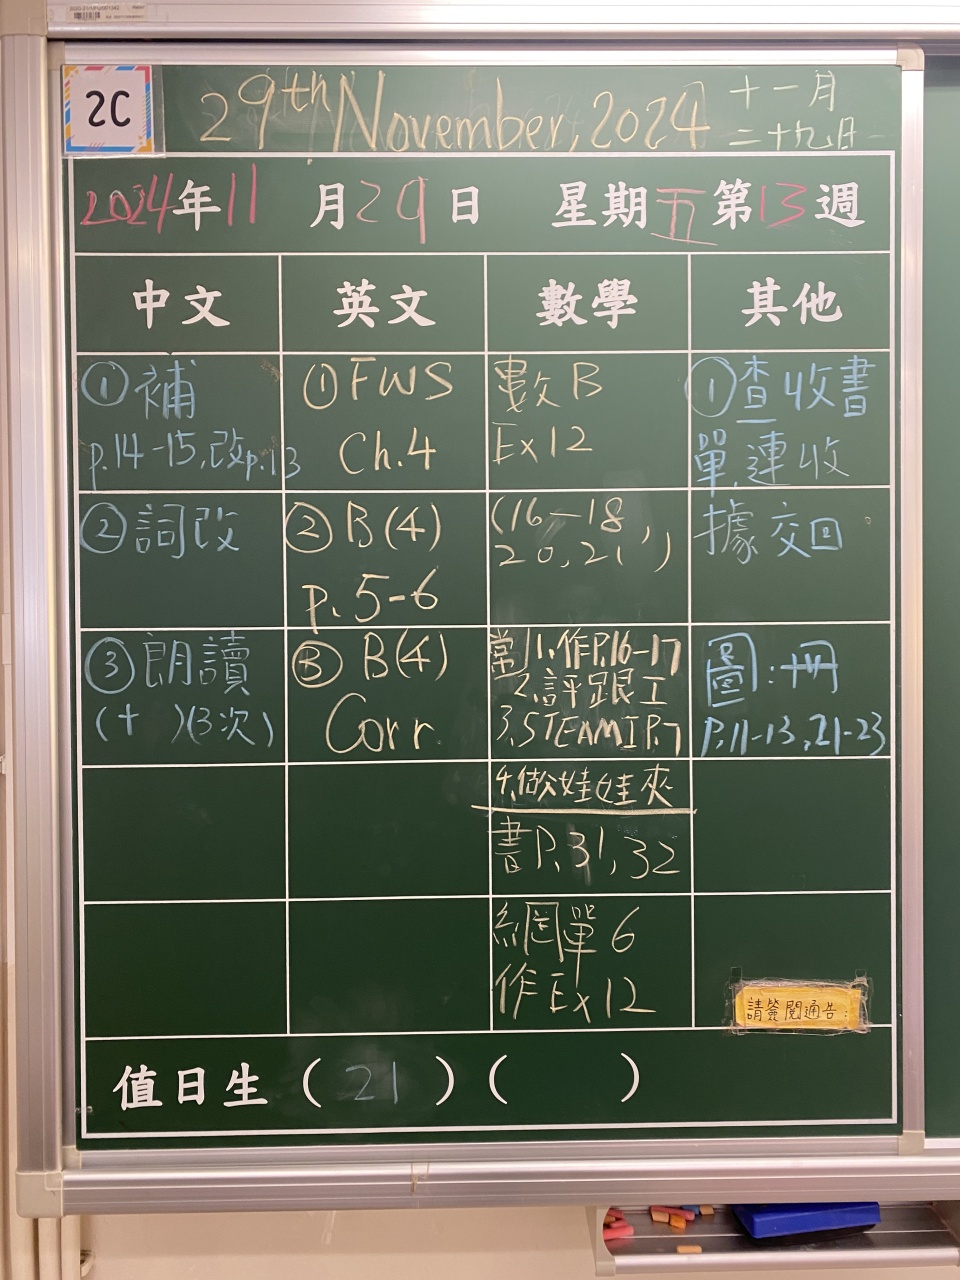 2C
29th November, 2024
十一月
二十九日
2024年11月29日 星期五第13週
中文
英文
數學
其他
①補
p.14-15,改p.13
②詞改
③朗讀
(十 )(3次)
①FWS
Ch.4
②B(4)
p.5-6
③B(4)
Corr.
數B
Ex12
(16-18,
20,21,)
常1.作P.16-17
2.評跟工
3.STEAM工P.7
4.做娃娃夾
書P.31,32
網單6
作Ex12
①查收書
單,連收
據交回
圖:冊
P.11-13,21-23
請簽閱通告:
值日生(21)( )